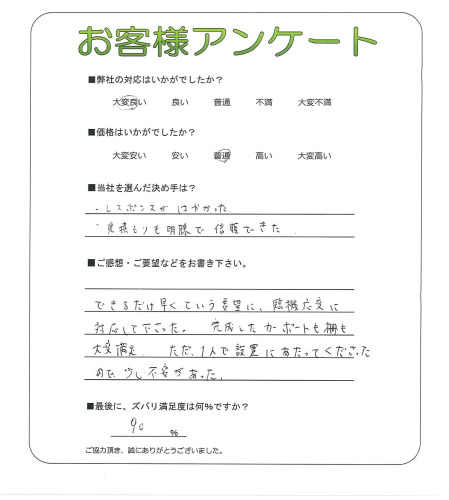 お客様アンケート
■弊社の対応はいかがでしたか？
大変良い 良い 普通 不満 大変不満
■価格はいかがでしたか？
大変安い 安い 普通 高い 大変高い
■当社を選んだ決め手は？
・レスポンスが はやかった.
・見積もりも明瞭で 信頼できた.
■ご感想・ご要望などをお書き下さい。
できるだけ早く という要望に、臨機応変に
対応して下さった。 完成した カーポートも 棚も
大変満足. ただ、1人で 設置 に あたってくださった
ので、少し不安があった.
■最後に、ズバリ満足度は何%ですか？
90 %
ご協力頂き、誠にありがとうございました。